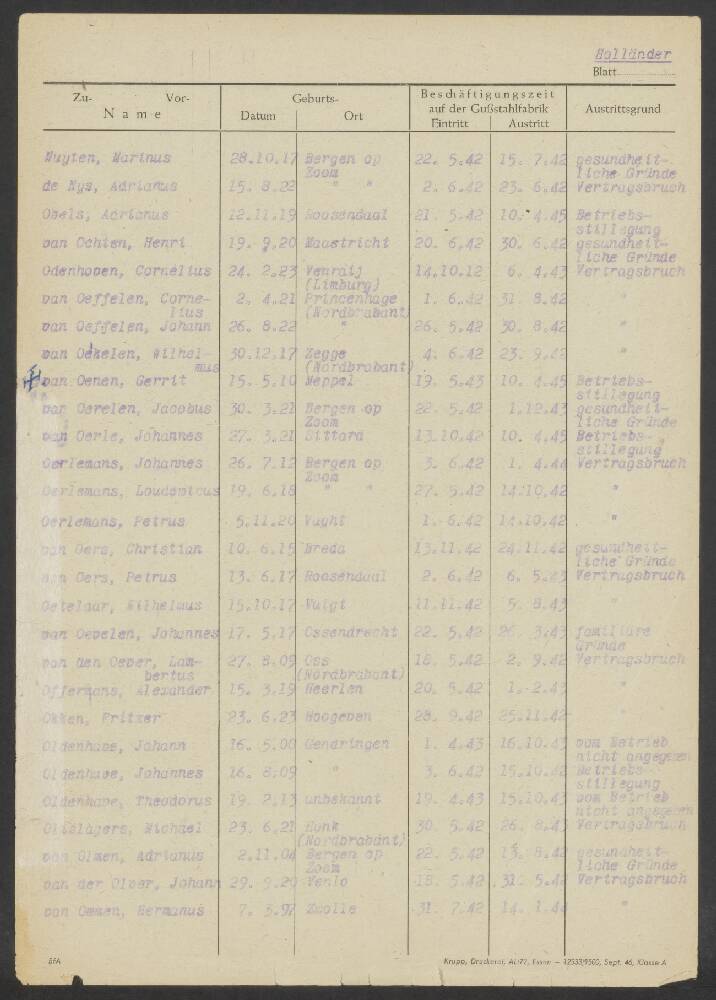 Holländer
Blatt
Zu- Vor- Name Geburts- Datum Ort Beschäftigungszeit auf der Gußstahlfabrik Eintritt Austritt Austrittsgrund
Nuyten, Marinus 28.10.17 Bergen op 22. 5.42 15. 7.42 gesundheit-
Zoom liche Gründe
de Nys, Adrianus 15. 8.22 " " 2. 6.42 23. 6.42 Vertragsbruch
Obels, Adrianus 12.11.19 Roosendaal 21. 5.42 10. 4.45 Betriebs-
stillegung
van Ochten, Henri 19. 9.20 Maastricht 20. 6.42 30. 6.42 gesundheit-
liche Gründe
Odenhoven, Cornélius 24. 2.23 Venraij 14.10.12 6. 4.43 Vertragsbruch
(Limburg)
van Oeffelen, Corne- 2. 4.21 Princenhage 1. 6.42 31. 8.42 "
lius (Nordbrabant)
van Oeffelen, Johann 26. 8.22 " 26. 5.42 30. 8.42
van Oekelen, Wilhel- 30.12.17 Zegge 4. 6.42 23. 9.42 "
mus (Nordbrabant)
van Oenen, Gerrit 15. 5.10 Meppel 19. 5.43 10. 4.45 Betriebs-
stillegung
van Oerelen, Jacobus 30. 3.21 Bergen op 22. 5.42 1.12.43 gesundheit-
Zoom liche Gründe
van Oerle, Johannes 27. 3.21 Sittard 13.10.42 10. 4.45 Betriebs-
stillegung
Oerlemans, Johannes 26. 7.12 Bergen op 3. 6.42 1. 4.44 Vertragsbruch
Zoom
Oerlemans, Loudovicus 19. 6.18 " " 27. 5.42 14.10.42 "
Oerlemans, Petrus 5.11.20 Vught 1. 6.42 14.10.42 "
van Oers, Christian 10. 6.15 Breda 13.11.42 24.11.42 gesundheit-
liche Gründe
van Oers, Petrus 13. 6.17 Roosendaal 2. 6.42 6. 5.43 Vertragsbruch
Oetelaar, Wilhelmus 15.10.17 Vuigt 11.11.42 5. 8.43 "
van Oevelen, Johannes 17. 5.17 Ossendrecht 22. 5.42 26. 3.43 familiäre
Gründe
van den Oever, Lam- 27. 8.09 Oss 18. 5.42 2. 9.42 Vertragsbruch
bertus (Nordbrabant)
Offermans, Alexander 15. 3.19 Heerlen 20. 5.42 1. 2.43 "
Okken, Fritzer 23. 6.23 Hoogeven 28. 9.42 25.11.42 "
Oldenhave, Johann 16. 5.00 Gendringen 1. 4.43 16.10.43 vom Betrieb
nicht angegeben
Oldenhave, Johannes 16. 8.09 " 3. 6.42 15.10.42 Betriebs-
stillegung
Oldenhave, Theodorus 19. 2.13 unbekannt 19. 4.43 15.10.43 vom Betrieb
nicht angegeben
Olislagers, Michael 23. 6.21 Honk 30. 5.42 26. 8.43 Vertragsbruch
(Nordbrabant)
van Olmen, Adrianus 2.11.04 Bergen op 22. 5.42 13. 8.42 gesundheit-
Zoom liche Gründe
van der Olver, Johann 29. 9.20 Venlo 18. 5.42 31. 5.42 Vertragsbruch
van Ommen, Hermanus 7. 5.97 Zwolle 31. 7.42 14. 1.44 "
BfA Krupp, Druckerei, Essen — Sept. 46, Klasse A